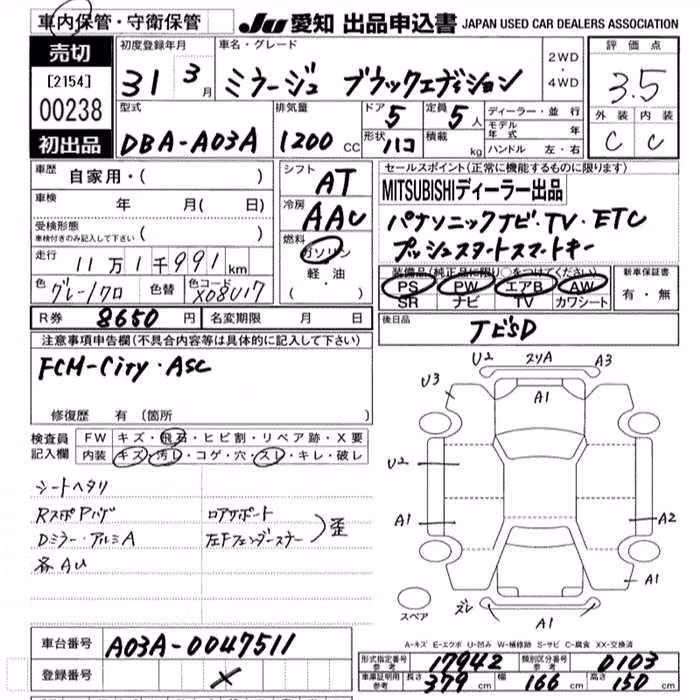 車内保管・守衛保管 JU 愛知 出品申込書 JAPAN USED CAR DEALERS ASSOCIATION
売切 [2154] 00238 初出品
初度登録年月 31 3月
車名・グレード ミラージュ ブラックエディション
2WD・4WD
評価点 3.5
外装 内装
C C
型式 DBA-A03A
排気量 1200 CC
ドア 5 定員 5人
形状 ハコ 積載 kg
ディーラー・並行
モデル年式 年
ハンドル 左・右
車歴 自家用・( )
車検 年 月( 日)
受検形態 車検付きのみ記入して下さい ( )
走行 11万1千991km
色 グレー/クロ 色替 色コード X08U17
シフト AT
冷房 AAC
燃料 ガソリン・軽油 ( ・ )
セールスポイント(正常に機能するものに限ります)
MITSUBISHIディーラー出品
パナソニックナビ・TV・ETC
プッシュスタートスマートキー
装備品(純正品に限り○をつけてください)
PS PW エアB AW
SR ナビ TV カワシート
新車保証書 有・無
R券 8650円 名変期限 月 日
後日品 ナビSD
注意事項申告欄(不具合内容等は具体的に記入して下さい)
FCM-City・ASC
修復歴 有 (箇所 )
検査員記入欄
FW キズ・飛石・ヒビ割・リペア跡・X要
内装 キズ・汚レ・コゲ・穴・スレ・キレ・破レ
シートヘタリ
Rスポアハゲ ロアサポート
Dミラー・アルミA 左Fフェンダーステー )歪
各AU
U2 スリA A3
U3 A1
U2
A1 A2
A1
スペア ズレ A1
A-キズ E-エクボ U-凹み W-補修跡 S-サビ C-腐食 XX-交換済
車台番号 A03A-0047511
登録番号
形式指定番号参考 17942 類別区分番号参考 0103
車庫証明用参考 長さ 379cm 幅 166cm 高さ 150cm